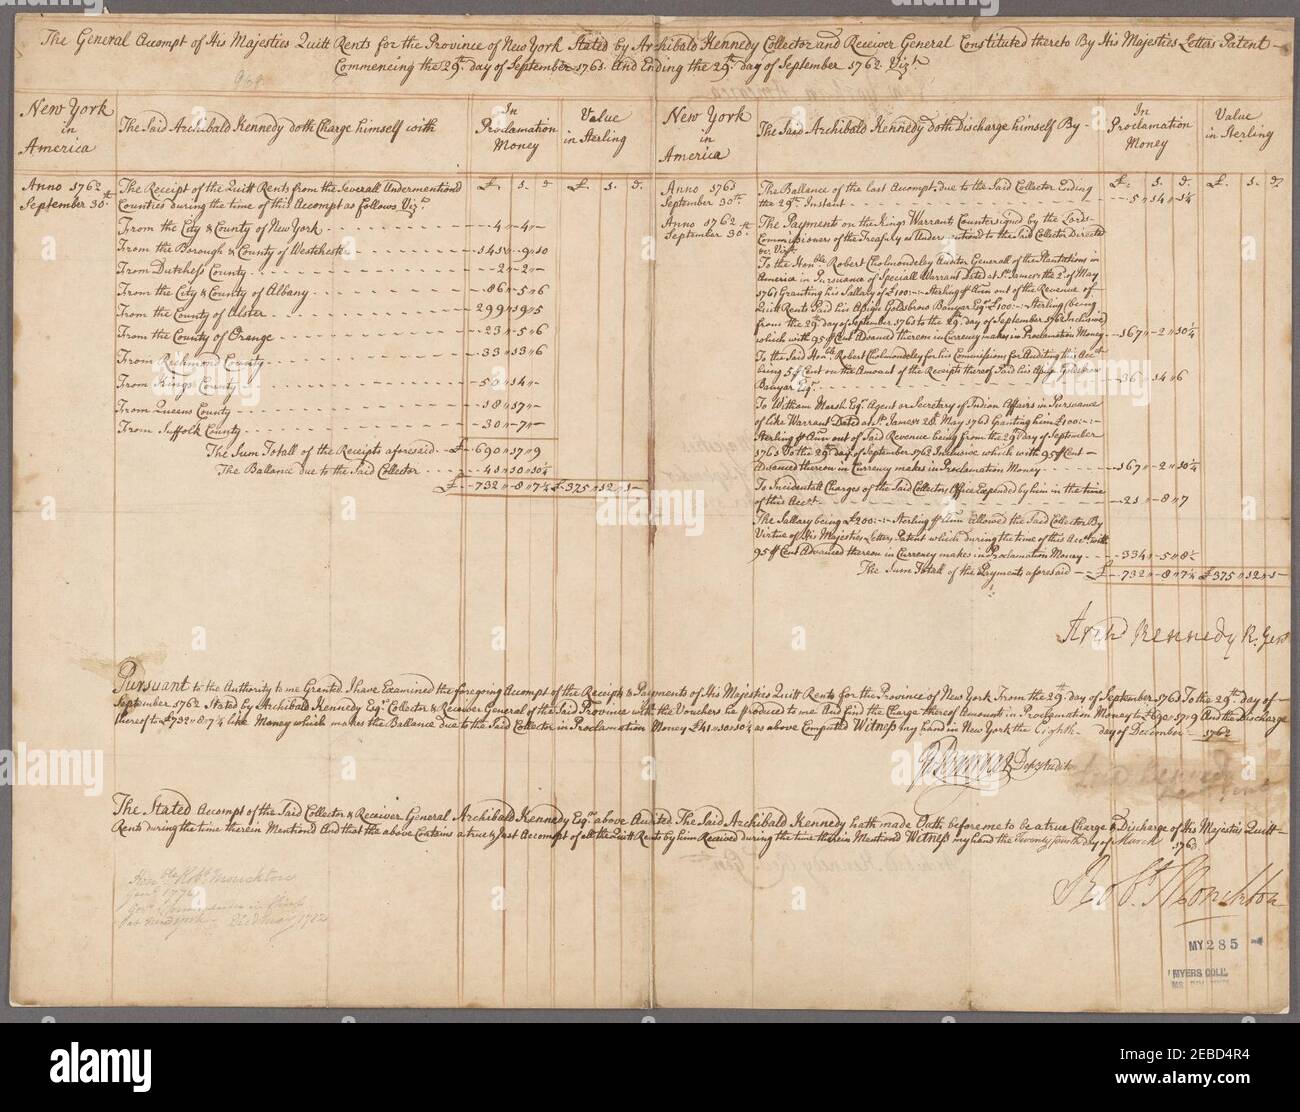 The General Accompt of His Majesties Quitt Rents for the Province of New York Stated by Archibald Kennedy Collector and Receiver General Constituted thereto By His Majesties Letters Patent
Commencing the 29th. day of September 1761. And Ending the 29th. day of September 1762. Vizt.
New York in America
The Said Archibald Kennedy doth Charge himself with
In Proclamation Money
Value in Sterling
Anno 1762 September 30th.
The Receipt of the Quitt Rents from the Severall Undermentioned
Counties during the time of this Accompt as follows Vizt.
£. s. d £. s. d
From the City & County of New York - - - 4 " 4 " -
From the Borough & County of Westchester - - - 145 " 9 " 10
From Dutchess County - - - 2 " - " -
From the City & County of Albany - - - 86 " 5 " 6
From the County of Ulster - - - 299 " 19 " 5
From the County of Orange - - - 23 " 5 " 6
From Richmond County - - - 33 " 13 " 6
From Kings County - - - 50 " 14 " -
From Queens County - - - 18 " 17 " -
From Suffolk County - - - 30 " 7 " -
The Sum Totall of the Receipts aforesaid - £ - 690 " 17 " 9
The Ballance due to the Said Collector - - - 41 " 10 " 10¼
£ - 732 " 8 " 7¼ £ 375 " 12 " 1 -
New York in America
The Said Archibald Kennedy doth Discharge himself By -
In Proclamation Money
Value in Sterling
£. s. d. £. s. d
Anno 1761 September 30th.
The Ballance of the last Accompt due to the Said Collector Ending
the 29th. Instant - - - 5 " 14 " 1¼
Anno 1762 September 30th.
The Payments on the Kings Warrant Countersigned by the Lords
Commissioners of the Treasury as Under mentiond to the Said Collector Directed
Vizt.
To the Honble. Robert Cholmondeley Auditor Generall of the Plantations in
America in Pursuance of Speciall Warrant Dated at St. James's the 2d. of May
1761 Granting his Sallary of £100:-:- Sterling Ann out of the Revenue of
Quitt Rents Paid his Assign Goldsbrow Banyar Esqr. £100:-:- Sterling (being
from the 29th. day of September 1761 to the 29th. day of September 1762 Inclusive
which with 95 Cent Advanced thereon in Currency makes in Proclamation Money - - - 167 " 2 " 10¼
To the Said Honble. Robert Cholmondeley for his Commissions for Auditing this Acct
being 5 Cent on the Amount of the Receipts thereof Paid his Assign Goldsbrow
Banyar Esqr. - - - 36 " 14 " 6
To Witham Marsh Esqr. Agent or Secretary of Indian Affairs in Pursuance
of like Warrant Dated at St. James's 28. May 1761 Granting him £100:-:-
Sterling Ann out of Said Revenue being from the 29th. day of September
1761 To the 29th. day of September 1762 Inclusive which with 95 Cent
Advanced thereon in Currency makes in Proclamation Money - - - 167 " 2 " 10¼
To Incidentall Charges of the Said Collectors Office Expended by him in the time
of this Acct. - - - 21 " 8 " 7
The Sallary being £200:-:- Sterling Ann allowed the Said Collector By
Virtue of His Majesties Letters Patent which during the time of this Acct. with
95 Cent Advanced thereon in Currency makes in Proclamation Money - - - 334 " 5 " 8½
The Sum Totall of the Payments aforesaid - £ - 732 " 8 " 7¼ £ 375 " 12 " 1 -
Archd. Kennedy R. Genl
Pursuant to the Authority to me Granted I have Examined the foregoing Accompt of the Receipts & Payments of His Majesties Quitt Rents for the Province of New York From the 29th. day of September 1761 To the 29th day of
September 1762 Stated by Archibald Kennedy Esqr. Collector & Receiver General of the Said Province with the Vouchers he produced to me And find the Charge thereof Amount in Proclamation Money to £690 " 17 " 9 And the Discharge
thereof to £732 " 8 " 7¼ like Money which makes the Ballance due to the Said Collector in Proclamation Money £41 " 10 " 10¼ as above Computed Witness my hand in New York the Eighth day of December 1762
G Banyar Dep. Audit
The Stated Accompt of the Said Collector & Receiver General Archibald Kennedy Esqr. above Audited The Said Archibald Kennedy hath made Oath before me to be a true Charge & Discharge of His Majesties Quitt
Rents during the time therein Mentiond And that the above Contains a true & Just Accompt of all the Quitt Rents by him Received during the time therein Mentiond Witness my hand the Twenty fourth day of March 1763
Robt. Monckton
Honble Robt. Monckton
MY 285
MYERS COLL.
alamy
Image ID: 2EBD4R4
www.alamy.com